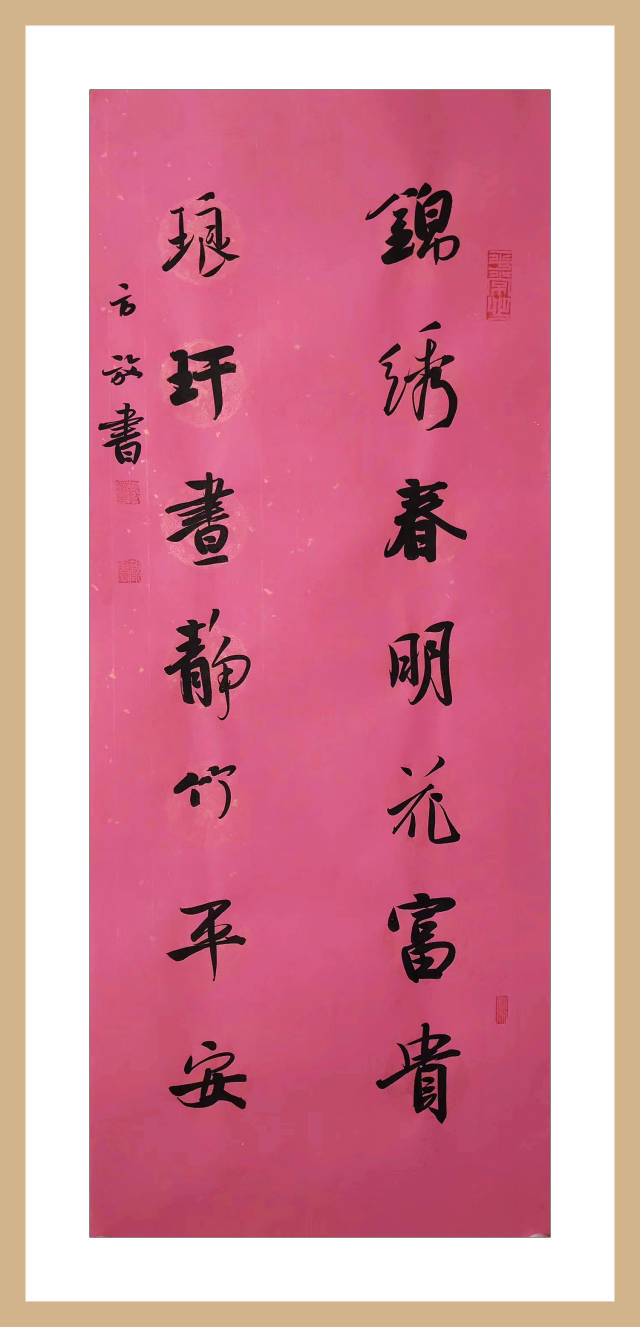 錦绣春明花富貴
琅玕晝静竹平安
方放書